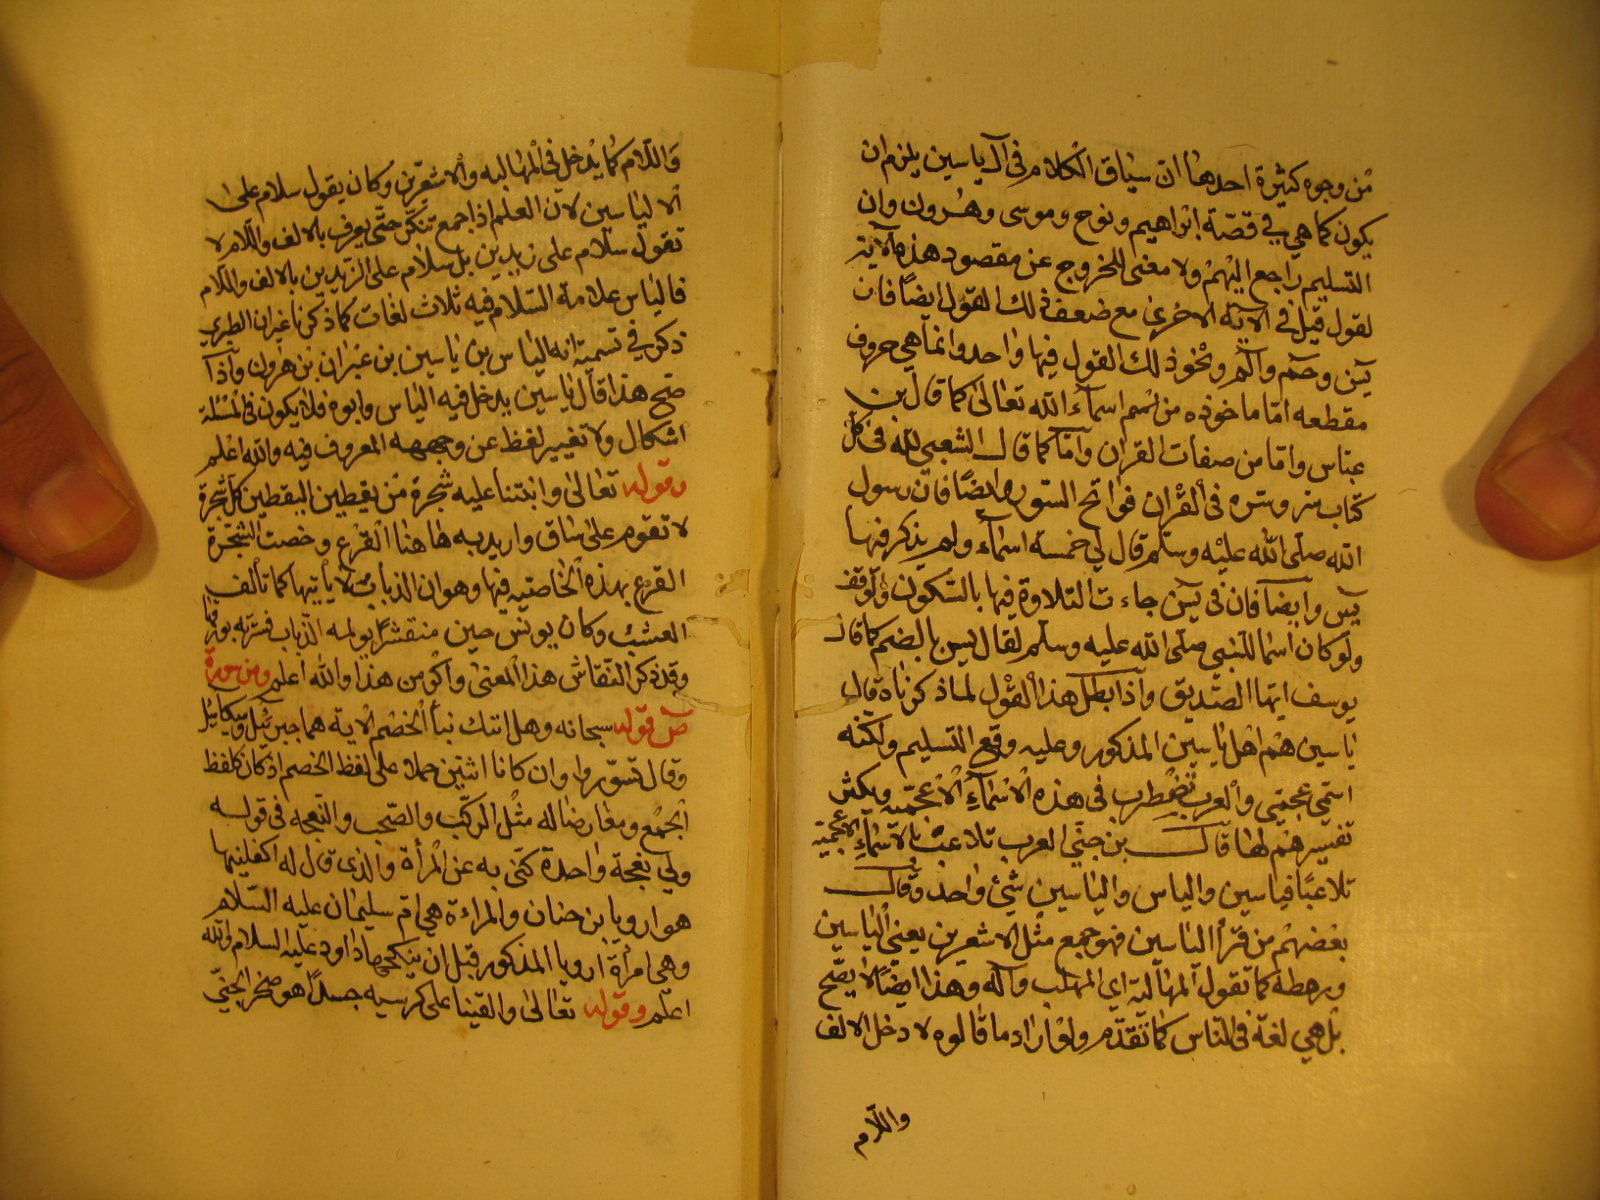 من وجوه كثيرة احدها ان سياق الكلام في آل ياسين يلزم ان
يكون كما هي في قصة ابراهيم ونوح وموسى وهرون وان
التسليم راجع اليهم ولا معنى للخروج عن مقصود هذه الآية
لقول قيل في الآية الاخرى مع ضعف ذلك القول ايضا فان
يس وحم والم ونحو ذلك القول فيها واحد وانما هي حروف
مقطعه اما ماخوذه من اسم اسماء الله تعالى كما قال بن
عباس واما من صفات القران واما كما قال الشعبي لله في كل
كتاب سر وسره في القران فواتح السور وايضا فان رسول
الله صلى الله عليه وسلم قال لي خمسة اسماء ولم يذكر فيها
يس وايضا فان في يس جاءت التلاوة فيها بالسكون والوقف
ولو كان اسما للنبي صلى الله عليه وسلم لقال يس بالضم كما قال
يوسف ايها الصديق واذا بطل هذا القول لما ذكرناه قال
ياسين هم اهل ياسين المذكور وعليه وقع التسليم ولكنه
اسم عجمي والعرب تضطرب في هذه الاسماء الاعجميه ويكثر
تغييرهم لها قال بن جني العرب تلاعب بالاسماء الاعجمية
تلاعبا فياسين والياس والياسين شئ واحد وقال
بعضهم من قرأ الياسين فهو جمع مثل الاشعرين يعني الياسين
ورهطه كما تقول المهالبة اي المهلب وآله وهذا ايضا لا يصح
بل هي لغة في الياس كما تقدم ولو اراد ما قالوه لادخل الالف
واللام
واللام كما يدخل في المهالبه والاشعرين وكان يقول سلام على
الالياسين لان العلم اذا جمع تنكر حتى يعرف بالالف واللام لا
تقول سلام على زيدين بل سلام على الزيدين بالالف واللام
فالياس علامة السلام فيه ثلاث لغات كما ذكرنا غير ان الطبري
ذكر في تسميته انه الياس بن ياسين بن عبران بن هرون واذا
صح هذا قال ياسين يدخل فيه الياس وابوه فلا يكون في المسئلة
اشكال ولا تغيير لفظ عن وجهه المعروف فيه والله اعلم
وقوله تعالى وانبتنا عليه شجرة من يقطين اليقطين كل شجرة
لا تقوم على ساق واريد به هاهنا القرع وخصت الشجرة
القرع بهذه الخاصيه فيها وهو ان الذباب لا يأتيها كما تألف
العشب وكان يونس حين متقشرا يولمه الذباب فستره بورقها
وقد ذكر النقاش هذا المعنى واكثر من هذا والله اعلم ومن سورة
ص قوله سبحانه وهل اتتك نبأ الخصم الآية هما جبرئيل وميكائيل
وقال تسوروا وان كانا اثنين حملا على لفظ الخصم اذ كان كلفظ
الجمع ومضارضا له مثل الركب والصحب والنعجه في قوله
ولي نعجة واحدة كنى به عن المرأة والذي قال له اكفلنيها
هو اروبا بن حنان والمراءة هي ام سليمان عليه السلام
وهي امرأة اروبا المذكور قبل ان ينكحها داود عليه السلام والله
اعلم وقوله تعالى والقينا على كرسيه جسدا هو صخر الجني